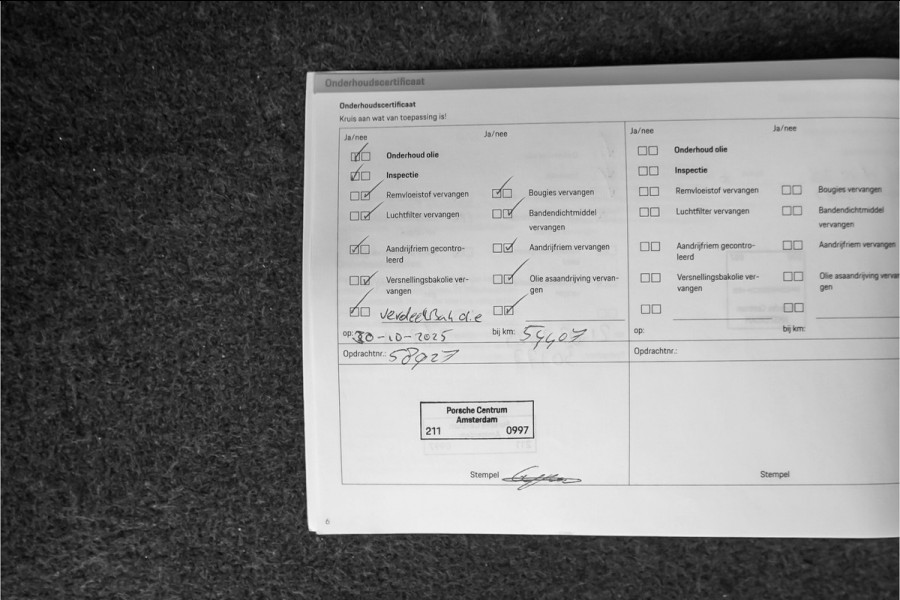 Onderhoudscertificaat
Onderhoudscertificaat
Kruis aan wat van toepassing is!
Ja/nee
Ja/nee
Onderhoud olie
Inspectie
Remvloeistof vervangen
Bougies vervangen
Luchtfilter vervangen
Bandendichtmiddel
vervangen
Aandrijfriem gecontro-
leerd
Aandrijfriem vervangen
Versnellingsbakolie ver-
vangen
Olie asaandrijving vervan-
gen
verdeelbak olie
op: 30-10-2025
bij km: 54407
Opdrachtnr.: 58927
Porsche Centrum
Amsterdam
211 0997
Stempel
6
Ja/nee
Ja/nee
Onderhoud olie
Inspectie
Remvloeistof vervangen
Bougies vervangen
Luchtfilter vervangen
Bandendichtmiddel
vervangen
Aandrijfriem gecontro-
leerd
Aandrijfriem vervangen
Versnellingsbakolie ver-
vangen
Olie asaandrijving verva
gen
op:
bij km:
Opdrachtnr.:
Stempel